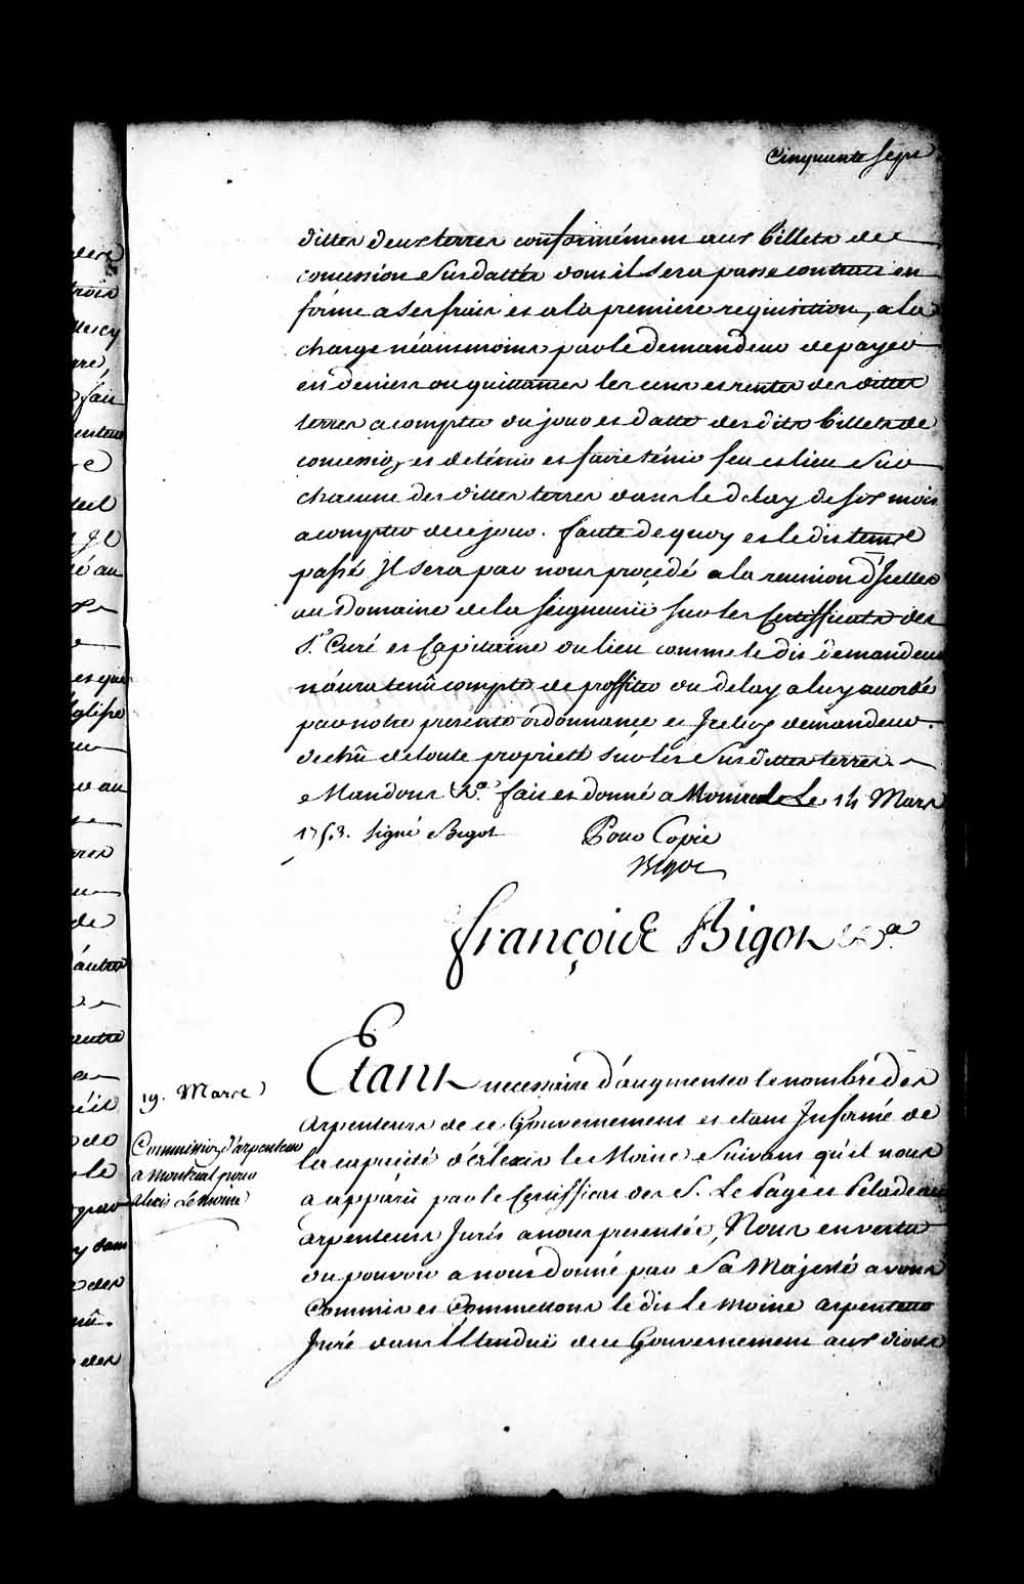 Cinquante sept
dittes deux terres conformément aux billets de
concession Susdattés dont il sera passé contract en
forme a ses frais et a la premiere requisition, a la
charge néanmoins par le demandeur de payer
en deniers ou quittances les cens et rentes des dittes
terres a compter du jour et datte desdits billets de
concession, et de tenir et faire tenir feu et lieu Sur
chacune des dittes terres dans le delay de six mois
a compter de ce jour. faute de quoy et le dit tems
passé Il sera par nous procédé a la reunion d'Icelles
au Domaine de la Seigneurie Sur les Certifficats des
Sr. Curé et Capitaine du lieu comme le dit demandeur
n'aura tenû compte de proffiter du delay a luy accordé
par notre presente ordonnance et Iceluy demandeur
dechû de toute proprieté Sur les Susdittes terres.
Mandons &a. fait et donné a Montreal Le 14 Mars
1753. Signé Bigot
Pour Copie
Bigot
françois Bigot &a.
19. Mars
Commission d'arpenteur
a Montreal pour
Alexis Le Moine
Etant necessaire d'augmenter le nombre des
Arpenteurs de ce Gouvernement et etant Informé de
la capacité d'Alexis le Moine Suivant qu'il nous
a apparû par le Certifficat des S. Le Page et Peladeau
arpenteurs Jurés a nous presentée, Nous en vertu
du pouvoir a nous donné par Sa Majesté avons
Commis et Commettons le dit le Moine arpenteur
Juré dans l'Etenduë de ce Gouvernement aux droits